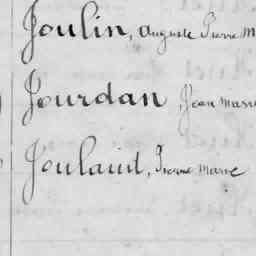 Joulin, Auguste Pierre M
Jourdan, Jean Marie
Joulaud, Pierre Marie